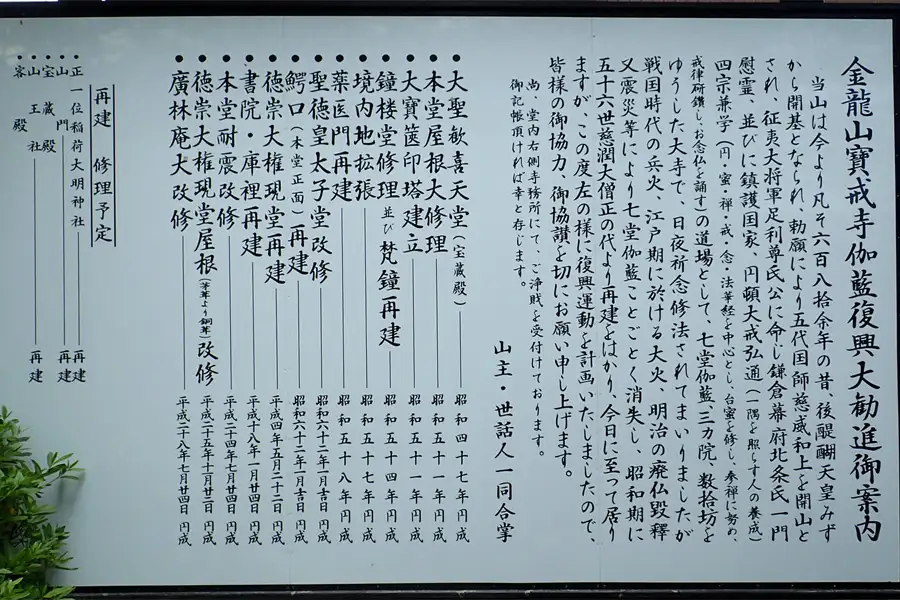 金龍山寶戒寺伽藍復興大勧進御案内
当山は今より凡そ六百八拾余年の昔、後醍醐天皇みず
から開基となられ、勅願により五代国師慈威和上を開山と
され、征夷大将軍足利尊氏公に命じ鎌倉幕府北条氏一門
慰霊、並びに鎮護国家、円頓大戒弘通(一隅を照らす人の養成)
四宗兼学(円・密・禅・戒・念・法華経を中心とし、台密を修し、参禅に努め、
戒律研鑽し、お念仏を誦す)の道場として、七堂伽藍三カ院、数拾坊を
ゆうした大寺で、日夜祈念修法されてまいりましたが
戦国時代の兵火、江戸期に於ける大火、明治の廃仏毀釋
又震災等により七堂伽藍ことごとく消失し、昭和期に
五十六世慈潤大僧正の代より再建をはかり、今日に至って居り
ますが、この度左の様に復興運動を計画いたしましたので、
皆様の御協力、御協讃を切にお願い申し上げます。
尚、堂内右側寺務所にて、ご浄財を受付けております。
御記帳頂ければ幸と存じます。
山主・世話人一同合掌
・大聖歓喜天堂(宝蔵殿) 昭和四十七年円成
・本堂屋根大修理 昭和五十一年円成
・大寶篋印塔建立 昭和五十一年円成
・鐘楼堂修理並び梵鐘再建 昭和五十四年円成
・境内地拡張 昭和五十七年円成
・薬医門再建 昭和五十八年円成
・聖徳皇太子堂改修 昭和六十二年一月吉日円成
・鰐口(本堂正面)再建 昭和六十二年一月吉日円成
・徳崇大権現堂再建 平成四年五月二十二日円成
・書院・庫裡再建 平成十八年一月廿四日円成
・本堂耐震改修 平成二十四年七月廿四日円成
・徳崇大権現堂屋根(茅葺より銅葺)改修 平成二十五年十一月廿二日円成
・廣林庵大改修 平成二十八年七月廿四日円成
再建 修理予定
・正一位稲荷大明神社 再建
・山門 再建
・宝蔵殿
・山王社 再建
・客殿